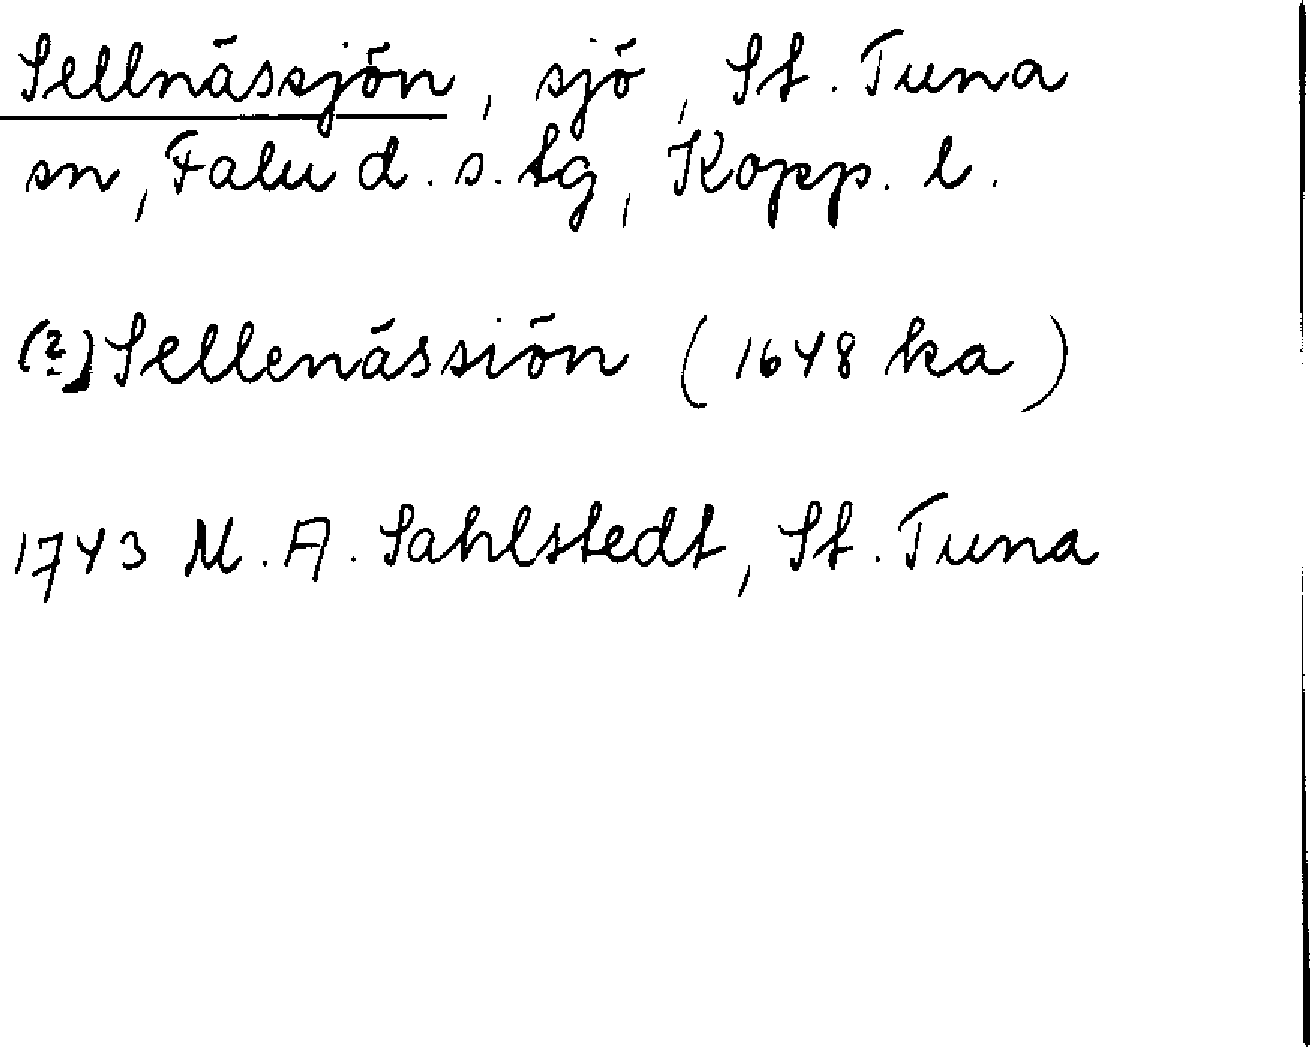 Sellnässjön, sjö, St. Tuna
sn, Falu d. s. tg, Kopp. l.
(?) Sellenässiön (1648 ka)
1743 M. A. Sahlstedt, St. Tuna